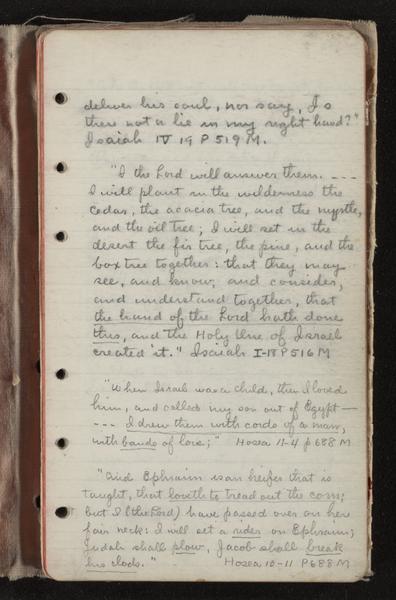 deliver his soul, nor say, Is
there not a lie in my right hand?"
Isaiah IV 19 P 519 M.
"I the Lord will answer them. ---
I will plant in the wilderness the
cedar, the acacia tree, and the myrtle,
and the oil tree; I will set in the
desert the fir tree, the pine, and the
box tree together: that they may
see, and know, and consider,
and understand together, that
the hand of the Lord hath done
this, and the Holy One of Israel
created it." Isaiah I-18 P 516 M
"When Israel was a child, then I loved
him, and called my son out of Egypt —
--- I drew them with cords of a man,
with bands of love;" Hosea 11-4 p 688 M
"And Ephraim is an heifer that is
taught, that loveth to tread out the corn;
but I (the Lord) have passed over on her
fair neck: I will set a rider on Ephraim;
Judah shall plow, Jacob shall break
his clods." Hosea 10-11 P 688 M